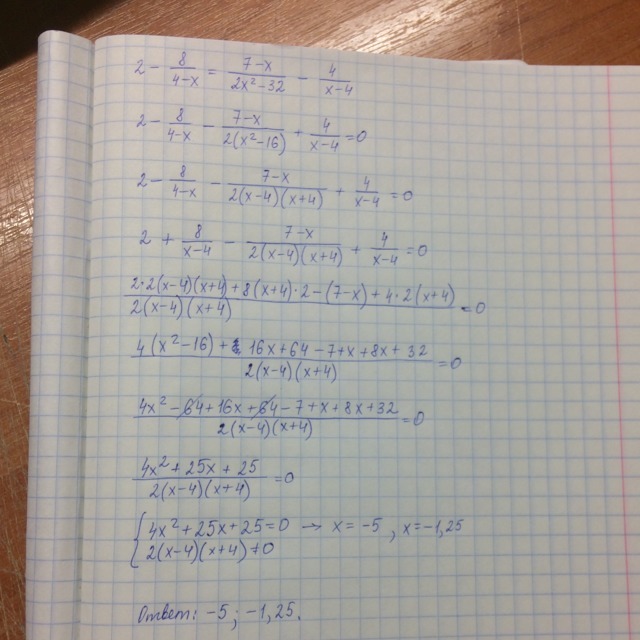 2 - 8/(4-x) = (7-x)/(2x²-32) - 4/(x-4)
2 - 8/(4-x) - (7-x)/(2(x²-16)) + 4/(x-4) = 0
2 - 8/(4-x) - (7-x)/(2(x-4)(x+4)) + 4/(x-4) = 0
2 + 8/(x-4) - (7-x)/(2(x-4)(x+4)) + 4/(x-4) = 0
(2·2(x-4)(x+4)+8(x+4)·2-(7-x)+4·2(x+4))/(2(x-4)(x+4)) = 0
(4(x²-16)+16x+64-7+x+8x+32)/(2(x-4)(x+4)) = 0
(4x²-64+16x+64-7+x+8x+32)/(2(x-4)(x+4)) = 0
(4x²+25x+25)/(2(x-4)(x+4)) = 0
{4x²+25x+25=0 → x=-5, x=-1,25
2(x-4)(x+4)≠0
Ответ: -5; -1,25.